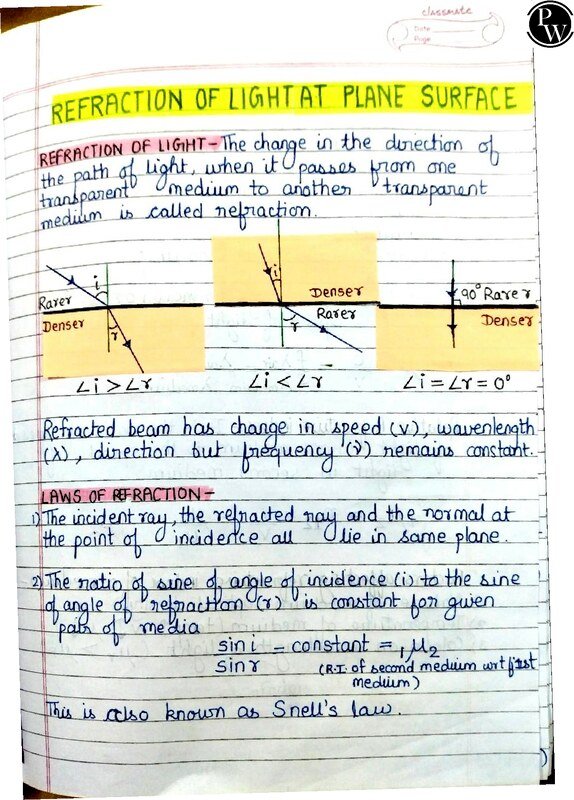 classmate
Date
Page
PW
REFRACTION OF LIGHT AT PLANE SURFACE
REFRACTION OF LIGHT - The change in the direction of
the path of light, when it passes from one
transparent medium to another transparent
medium is called refraction.
i
Rarer
Denser
r
∠i > ∠r
i
Denser
Rarer
r
∠i < ∠r
90° Rarer
Denser
∠i = ∠r = 0°
Refracted beam has change in speed (v), wavenlength
(λ), direction but frequency (ν) remains constant.
LAWS OF REFRACTION -
1) The incident ray, the refracted ray and the normal at
the point of incidence all lie in same plane.
2) The ratio of sine of angle of incidence (i) to the sine
of angle of refraction (r) is constant for given
pair of media
sin i / sin r = constant = ₁μ₂
(R.I. of second medium wrt first
medium)
This is also known as Snell's law.